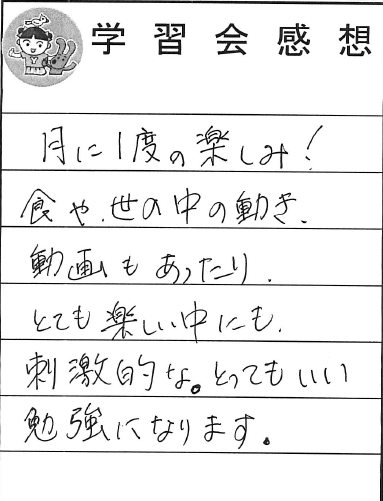 学習会感想
月に1度の楽しみ!
食や、世の中の動き、
動画もあったり、
とても楽しい中にも、
刺激的な。とってもいい
勉強になります。